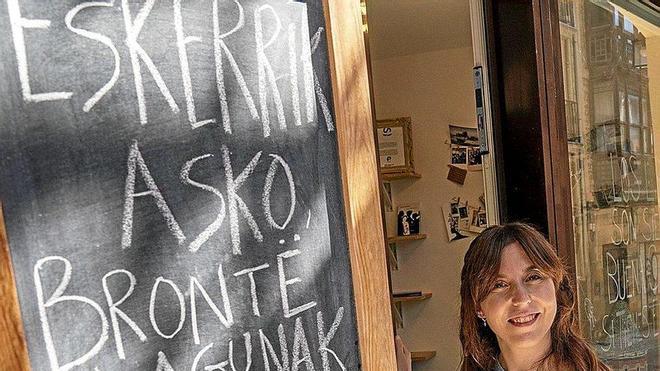 ESKERRIK
ASKO,
BRONTË
LAGUNAK
LOS
SON
BUENO